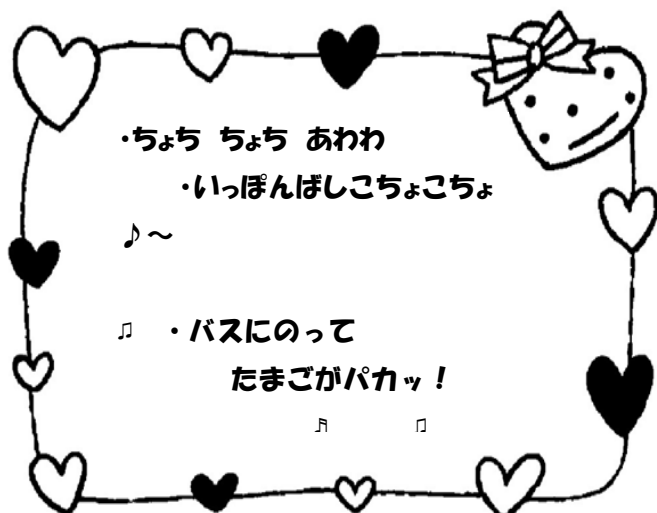 ・ちょち ちょち あわわ
・いっぽんばしこちょこちょ
♪～
♫ ・バスにのって
たまごがパカッ！
♬ ♫